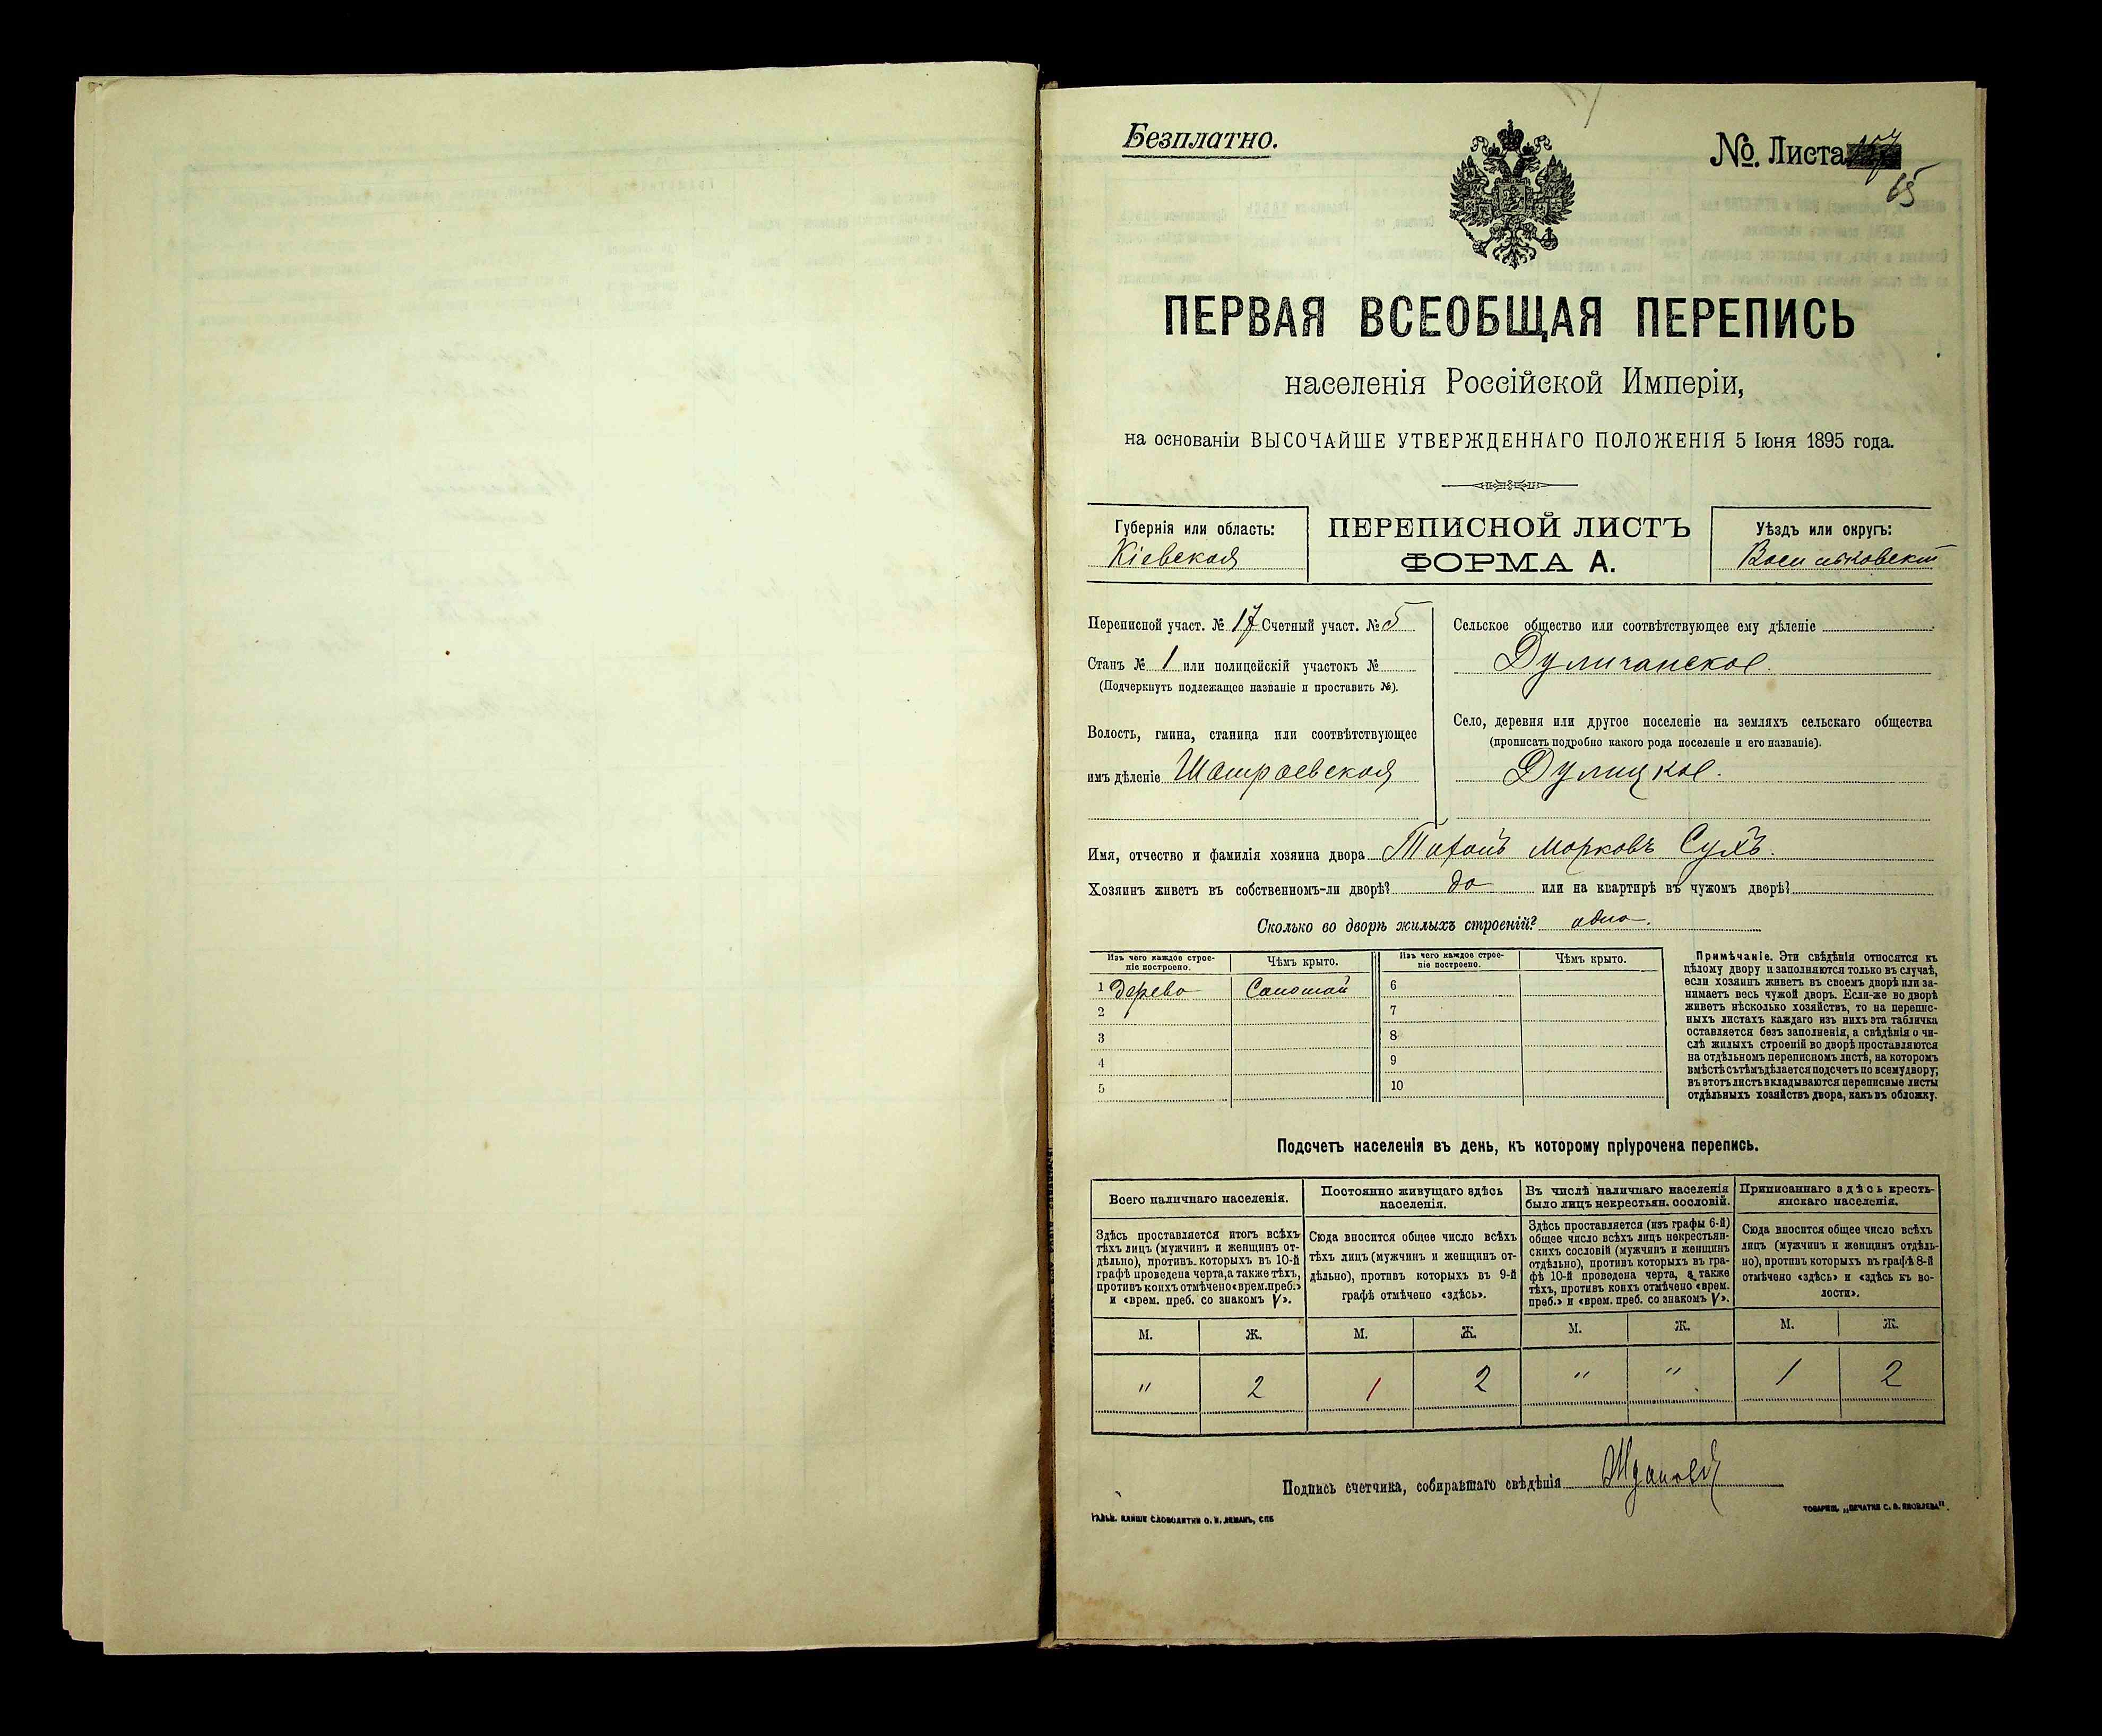 Безплатно.
№. Листа
65
ПЕРВАЯ ВСЕОБЩАЯ ПЕРЕПИСЬ
населенія Россійской Имперіи,
на основаніи ВЫСОЧАЙШЕ УТВЕРЖДЕННАГО ПОЛОЖЕНІЯ 5 Іюня 1895 года.
Губернія или область:
Кіевская
ПЕРЕПИСНОЙ ЛИСТЪ
ФОРМА А.
Уѣздъ или округъ:
Васильковскій
Переписной участ. № 17 Счетный участ. № 5
Станъ № 1 или полицейскій участокъ №
(Подчеркнуть подлежащее названіе и проставить №).
Волость, гмина, станица или соотвѣтствующее
имъ дѣленіе Шамраевская
Сельское общество или соотвѣтствующее ему дѣленіе
Дуличанское.
Село, деревня или другое поселеніе на земляхъ сельскаго общества
(прописать подробно какого рода поселеніе и его названіе).
Дулицкое.
Имя, отчество и фамилія хозяина двора Марковъ Сухъ.
Хозяинъ живетъ въ собственномъ-ли дворѣ? да или на квартирѣ въ чужомъ дворѣ?
Сколько во дворѣ жилыхъ строеній? одно.
Изъ чего каждое строе-
ніе построено.
Чѣмъ крыто.
Изъ чего каждое строе-
ніе построено.
Чѣмъ крыто.
1 Дерево Соломой 6
2 7
3 8
4 9
5 10
Примѣчаніе. Эти свѣдѣнія относятся къ
цѣлому двору и заполняются только въ случаѣ,
если хозяинъ живетъ въ своемъ дворѣ или за-
нимаетъ весь чужой дворъ. Если-же во дворѣ
живетъ нѣсколько хозяйствъ, то на перепис-
ныхъ листахъ каждаго изъ нихъ эта табличка
оставляется безъ заполненія, а свѣдѣнія о чи-
слѣ жилыхъ строеній во дворѣ проставляются
на отдѣльномъ переписномъ листѣ, на которомъ
вмѣстѣ съ тѣмъ дѣлается подсчетъ по всему двору;
въ этотъ листъ вкладываются переписные листы
отдѣльныхъ хозяйствъ двора, какъ въ обложку.
Подсчетъ населенія въ день, къ которому пріурочена перепись.
Всего наличнаго населенія.
Здѣсь проставляется итогъ всѣхъ
тѣхъ лицъ (мужчинъ и женщинъ от-
дѣльно), противъ которыхъ въ 10-й
графѣ проведена черта, а также тѣхъ,
противъ коихъ отмѣчено «врем. преб.»
и «врем. преб. со знакомъ V».
Постоянно живущаго здѣсь
населенія.
Сюда вносится общее число всѣхъ
тѣхъ лицъ (мужчинъ и женщинъ от-
дѣльно), противъ которыхъ въ 9-й
графѣ отмѣчено «здѣсь».
Въ числѣ наличнаго населенія
было лицъ некрестьян. сословій.
Здѣсь проставляется (изъ графы 6-й)
общее число всѣхъ лицъ некрестьян-
скихъ сословій (мужчинъ и женщинъ
отдѣльно), противъ которыхъ въ гра-
фѣ 10-й проведена черта, а также
тѣхъ, противъ коихъ отмѣчено «врем.
преб.» и «врем. преб. со знакомъ V».
Приписаннаго здѣсь кресть-
янскаго населенія.
Сюда вносится общее число всѣхъ
лицъ (мужчинъ и женщинъ отдѣль-
но), противъ которыхъ въ графѣ 8-й
отмѣчено «здѣсь» и «здѣсь къ во-
лости».
М. Ж. М. Ж. М. Ж. М. Ж.
" 2 1 2 " " 1 2
Подпись счетчика, собиравшаго свѣдѣнія Ждановъ
ГАЛЬВ. КЛИШЕ СЛОВОЛИТНИ О. И. ЛЕМАНЪ, СПБ
ТОВАРИЩ. „ПЕЧАТНЯ С. П. ЯКОВЛЕВА".